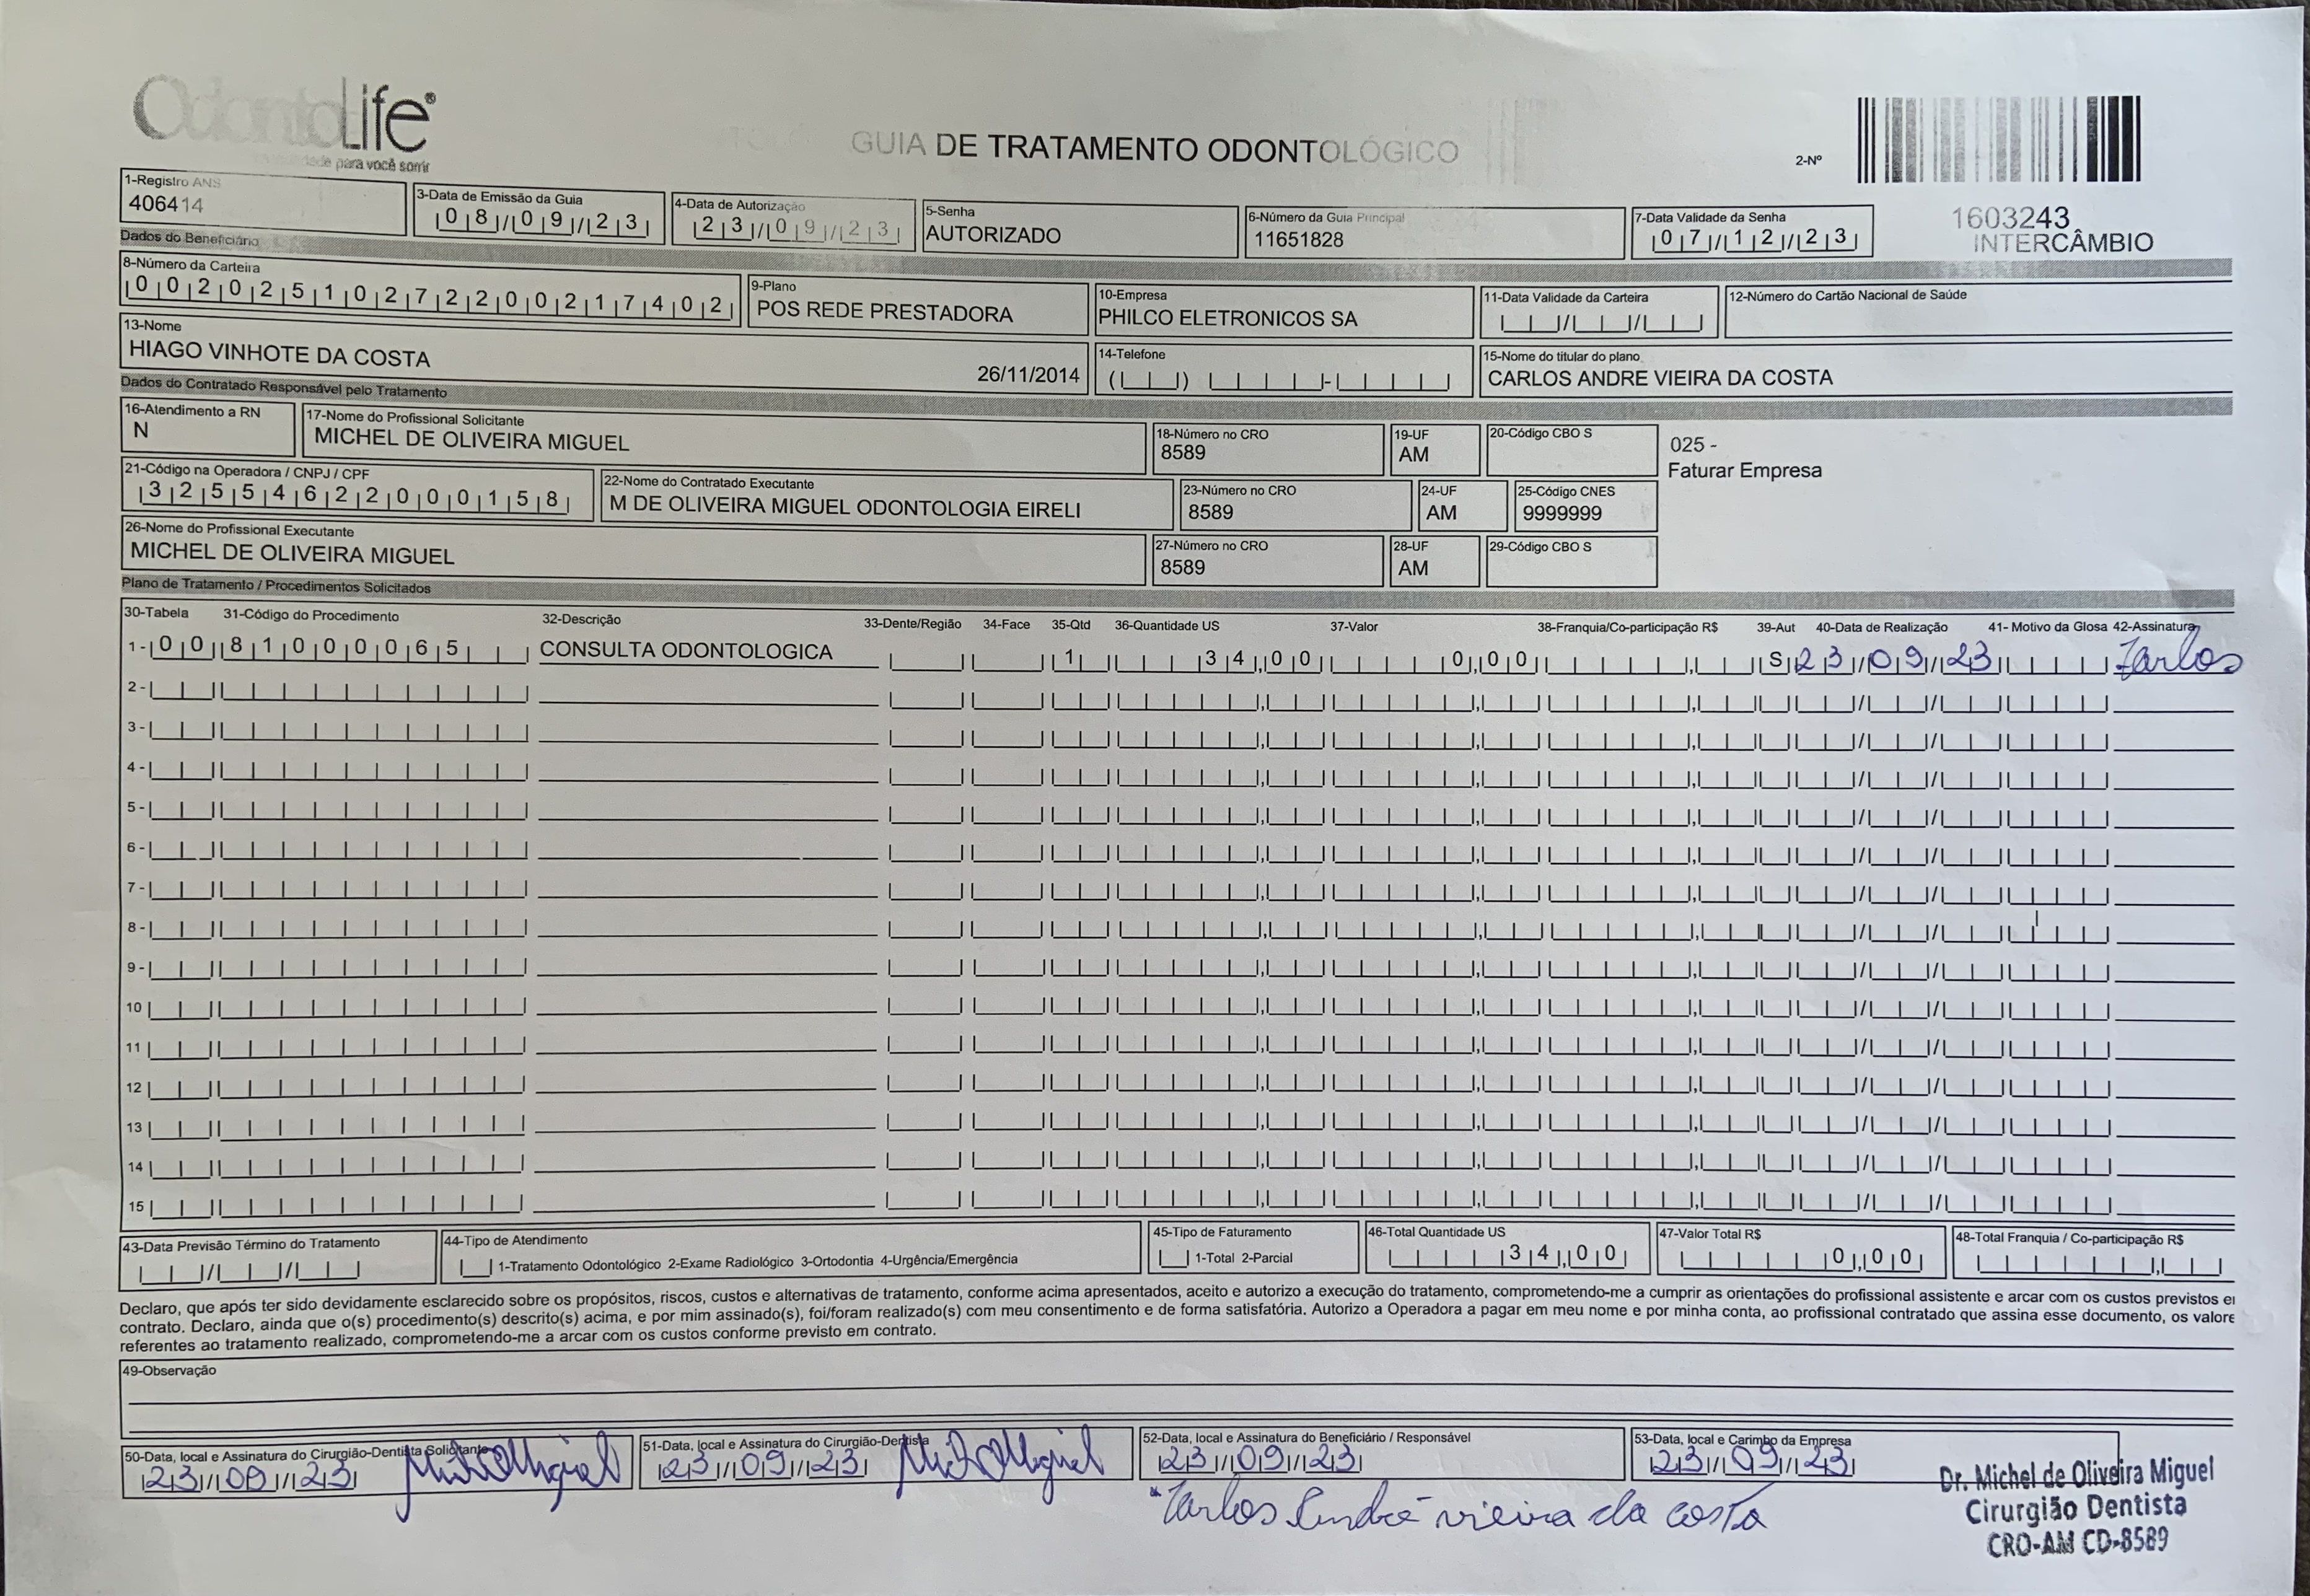 OdontoLife®
para você sorrir
GUIA DE TRATAMENTO ODONTOLÓGICO
2-Nº
1603243
INTERCÂMBIO
1-Registro ANS
406414
3-Data de Emissão da Guia
08/09/23
4-Data de Autorização
23/09/23
5-Senha
AUTORIZADO
6-Número da Guia Principal
11651828
7-Data Validade da Senha
07/12/23
Dados do Beneficiário
8-Número da Carteira
00202510272200217402
9-Plano
POS REDE PRESTADORA
10-Empresa
PHILCO ELETRONICOS SA
11-Data Validade da Carteira
12-Número do Cartão Nacional de Saúde
13-Nome
HIAGO VINHOTE DA COSTA
26/11/2014
14-Telefone
15-Nome do titular do plano
CARLOS ANDRE VIEIRA DA COSTA
Dados do Contratado Responsável pelo Tratamento
16-Atendimento a RN
N
17-Nome do Profissional Solicitante
MICHEL DE OLIVEIRA MIGUEL
18-Número no CRO
8589
19-UF
AM
20-Código CBO S
025 -
Faturar Empresa
21-Código na Operadora / CNPJ / CPF
32554622000158
22-Nome do Contratado Executante
M DE OLIVEIRA MIGUEL ODONTOLOGIA EIRELI
23-Número no CRO
8589
24-UF
AM
25-Código CNES
9999999
26-Nome do Profissional Executante
MICHEL DE OLIVEIRA MIGUEL
27-Número no CRO
8589
28-UF
AM
29-Código CBO S
Plano de Tratamento / Procedimentos Solicitados
30-Tabela 31-Código do Procedimento 32-Descrição 33-Dente/Região 34-Face 35-Qtd 36-Quantidade US 37-Valor 38-Franquia/Co-participação R$ 39-Aut 40-Data de Realização 41- Motivo da Glosa 42-Assinatura
1- 00 81000065 CONSULTA ODONTOLOGICA 1 34,00 0,00 S 23/09/23 Carlos
2-
3-
4-
5-
6-
7-
8-
9-
10
11
12
13
14
15
43-Data Previsão Término do Tratamento
44-Tipo de Atendimento
1-Tratamento Odontológico 2-Exame Radiológico 3-Ortodontia 4-Urgência/Emergência
45-Tipo de Faturamento
1-Total 2-Parcial
46-Total Quantidade US
34,00
47-Valor Total R$
0,00
48-Total Franquia / Co-participação R$
Declaro, que após ter sido devidamente esclarecido sobre os propósitos, riscos, custos e alternativas de tratamento, conforme acima apresentados, aceito e autorizo a execução do tratamento, comprometendo-me a cumprir as orientações do profissional assistente e arcar com os custos previstos e
contrato. Declaro, ainda que o(s) procedimento(s) descrito(s) acima, e por mim assinado(s), foi/foram realizado(s) com meu consentimento e de forma satisfatória. Autorizo a Operadora a pagar em meu nome e por minha conta, ao profissional contratado que assina esse documento, os valore
referentes ao tratamento realizado, comprometendo-me a arcar com os custos conforme previsto em contrato.
49-Observação
50-Data, local e Assinatura do Cirurgião-Dentista Solicitante
23/09/23
51-Data, local e Assinatura do Cirurgião-Dentista
23/09/23
52-Data, local e Assinatura do Beneficiário / Responsável
23/09/23
Carlos André vieira da costa
53-Data, local e Carimbo da Empresa
23/09/23
Dr. Michel de Oliveira Miguel
Cirurgião Dentista
CRO-AM CD-8589